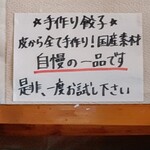 ★手作り餃子★
皮から全て手作り！国産素材
自慢の一品です
是非、一度お試し下さい